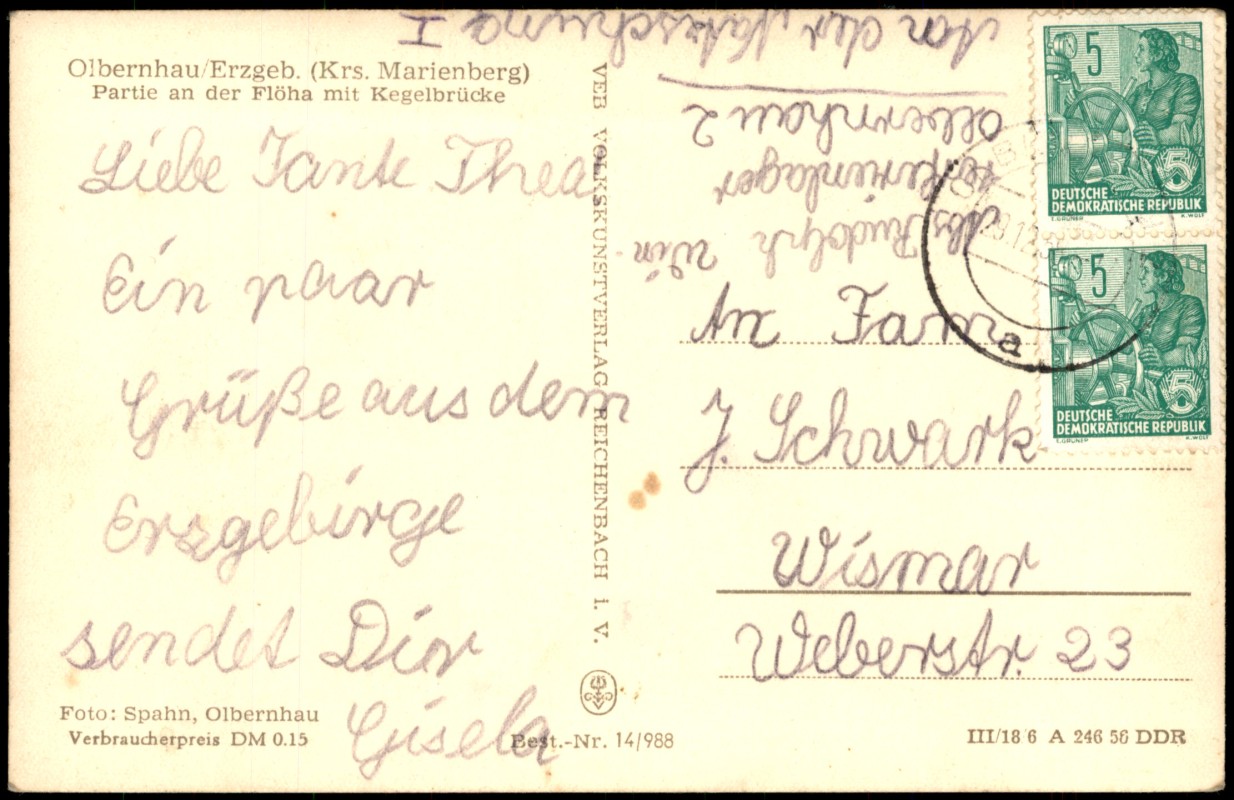 Olbernhau/Erzgeb. (Krs. Marienberg)
Partie an der Flöha mit Kegelbrücke
Liebe Tante Thea
Ein paar
Grüße aus dem
Erzgebirge
sendet Dir
Gisela
Foto: Spahn, Olbernhau
Verbraucherpreis DM 0.15
Best.-Nr. 14/988
VEB VOLKSKUNSTVERLAG REICHENBACH i. V.
Rudolph
ferienlager
Olbernhau 2
An der
I
An Fam
J. Schwark
Wismar
Weberstr. 23
III/18 6 A 246 56 DDR
5
5
DEUTSCHE
DEMOKRATISCHE REPUBLIK
E.GRUNER K.WOLF
5
5
DEUTSCHE
DEMOKRATISCHE REPUBLIK
E.GRUNER K.WOLF
a